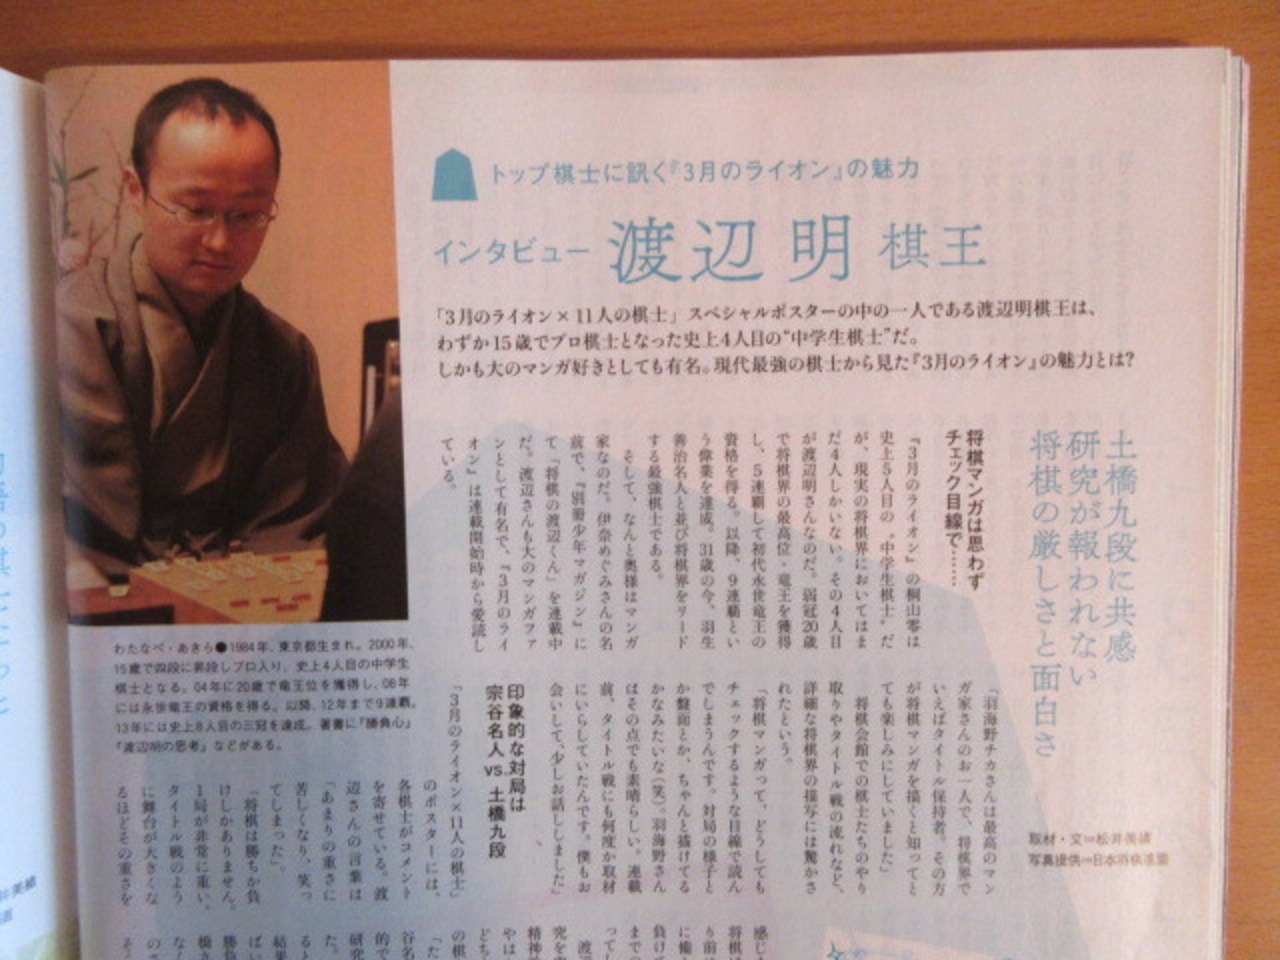 トップ棋士に訊く『3月のライオン』の魅力
インタビュー 渡辺 明 棋王
「3月のライオン×11人の棋士」スペシャルポスターの中の一人である渡辺明棋王は、
わずか15歳でプロ棋士となった史上4人目の“中学生棋士”だ。
しかも大のマンガ好きとしても有名。現代最強の棋士から見た『3月のライオン』の魅力とは?
土橋九段に共感
研究が報われない
将棋の厳しさと面白さ
取材・文=松井美緒
写真提供=日本将棋連盟
将棋マンガは思わず
チェック目線で……
『3月のライオン』の桐山零は
史上5人目の“中学生棋士”だ
が、現実の将棋界においてはま
だ4人しかいない。その4人目
が渡辺明さんなのだ。弱冠20歳
で将棋界の最高位・竜王を獲得
し、5連覇して初代永世竜王の
資格を得る。以降、9連覇とい
う偉業を達成。31歳の今、羽生
善治名人と並び将棋界をリード
する最強棋士である。
そして、なんと奥様はマンガ
家なのだ。伊奈めぐみさんの名
前で、『別冊少年マガジン』に
て「将棋の渡辺くん」を連載中
だ。渡辺さんも大のマンガファ
ンとして有名で、『3月のライ
オン』は連載開始時から愛読し
ている。
「羽海野チカさんは最高のマン
ガ家さんのお一人で、将棋界で
いえばタイトル保持者。その方
が将棋マンガを描くと知ってと
ても楽しみにしていました」
将棋会館での棋士たちのやり
取りやタイトル戦の流れなど、
詳細な将棋界の描写には驚かさ
れたという。
「将棋マンガって、どうしても
チェックするような目線で読ん
でしまうんです。対局の様子と
か盤面とか、ちゃんと描けてる
かなみたいな(笑)。羽海野さん
はその点でも素晴らしい。連載
前、タイトル戦にも何度か取材
にいらしていたんです。僕もお
会いして、少しお話ししました」
印象的な対局は
宗谷名人vs.土橋九段
「3月のライオン×11人の棋士」
のポスターには、
各棋士がコメント
を寄せている。渡
辺さんの言葉は
「あまりの重さに
苦しくなり、笑っ
てしまった」。
「将棋は勝ちか負
けしかありません。
1局が非常に重い。
タイトル戦のよう
に舞台が大きくな
るほどその重さを
わたなべ・あきら●1984年、東京都生まれ。2000年、
15歳で四段に昇段しプロ入り、史上4人目の中学生
棋士となる。04年に20歳で竜王位を獲得し、08年
には永世竜王の資格を得る。以降、12年まで9連覇。
13年には史上8人目の三冠を達成。著書に『勝負心』
『渡辺明の思考』などがある。